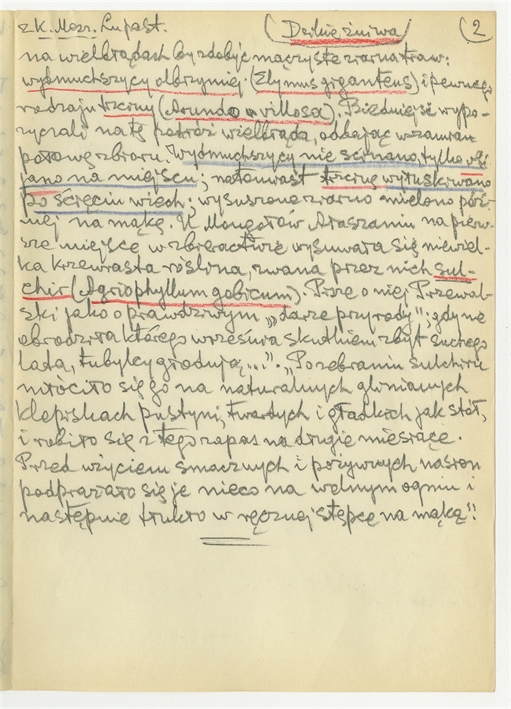 z K. Mosz. Lupast. (Dzikie żniwa) (2
na wielbłądach by zdobyć mączyste ziarna traw:
wydmuchrzycy olbrzymiej (Elymus giganteus) i pewnego
rodzaju trzciny (Arundo villosa). Biedniejsi wypo-
życzali na tę podróż wielbłąda, oddając wzamian
połowę zbioru. Wydmuchrzycy nie ścinano, tylko
na miejscu; natomiast trzcinę wyłuskiwano
po ścięciu wiech; wysuszone ziarno mielono póź-
niej na mąkę. U Mongołów Ałaszaniu na pierw-
sze miejsce w zbieractwie wysuwała się niewiel-
ka krzewiasta roślina, zwana przez nich sul-
chir (Agriophyllum gobicum). Pisze o niej Przewal-
ski jako o prawdziwym „darze przyrody"; gdy nie
obrodziła którego września skutkiem zbyt suchego
lata, tubylcy głodują..." „Po zebraniu sulchiru
młóciło się go na naturalnych glinianych
klepiskach pustyni, twardych i gładkich jak stół,
i robiło się z tego zapas na długie miesiące.
Przed użyciem smacznych i pożywnych nasion
podprażało się je nieco na wolnym ogniu i
następnie tłukło w ręcznej stępce na mąkę".